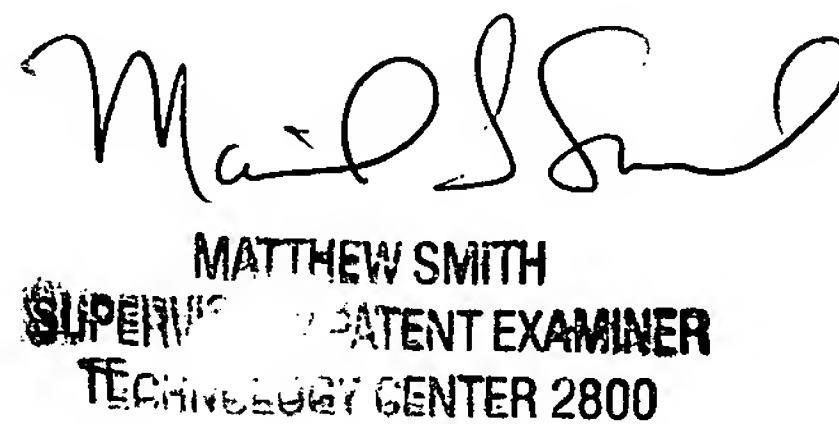 MATTHEW SMITH
PATENT EXAMINER
TECHNOLOGY CENTER 2800